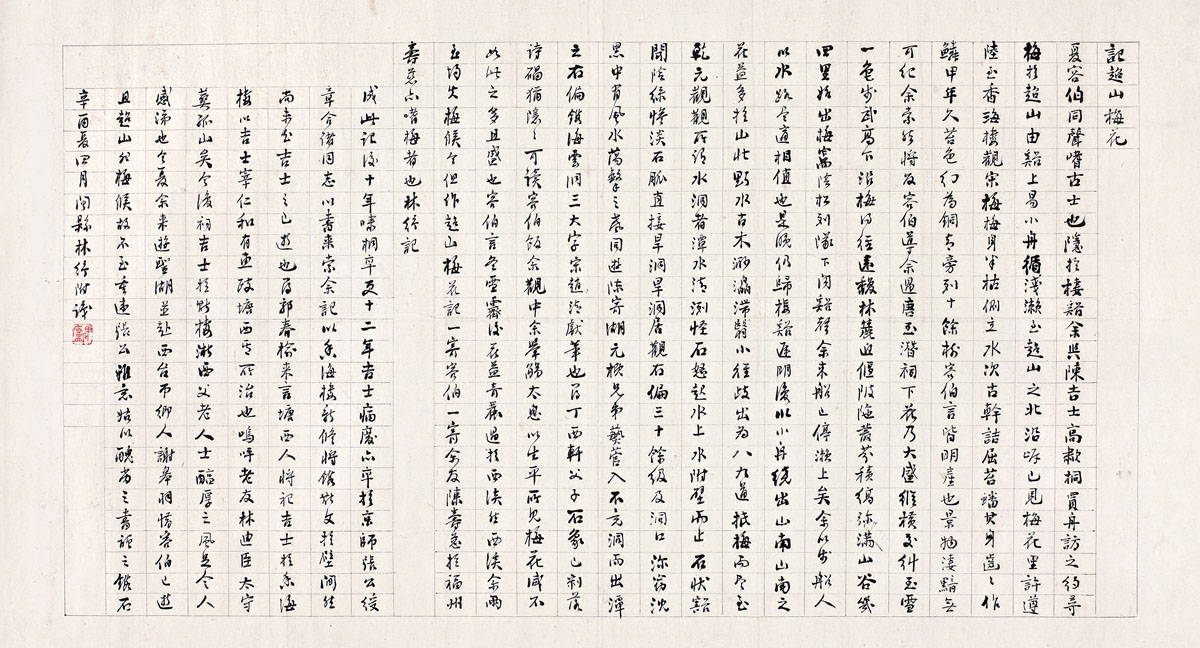 記超山梅花
夏容伯同聲嗜古士也隱於棲谿余與陳吉士高歗桐買舟訪之約尋
梅於超山由谿上易小舟循淺瀨至超山之北沿岸已見梅花里許遵
陸至香海樓觀宋梅梅身半枯側立水次古幹詰屈苔蟠其身齒齒作
鱗甲年久苔色幻為銅青旁列十餘樹容伯言皆明產也景物淒黯無
可紀余索然將返容伯導余過唐玉潛祠下花乃大盛縱橫交糾玉雪
一色步武高下沿梅得徑遠馥林麓近偃陂陁叢芬積縞彌滿山谷幾
四里始出梅窩陰松列隊下聞谿聲余來船已停瀨上矣余以步船人
以水路盡適相值也是晚仍歸棲谿遲明復以小舟繞出山南山南之
花益多於山北野水古木渺瀰滯翳小徑歧出為八九道抵梅而盡至
乾元觀觀所謂水洞者潭水清冽怪石怒起水上水附壁而止石狀谿
閜陰綠慘淡石脈直接旱洞旱洞居觀右偏三十餘級及洞口深窈沈
黑中有風水蕩擊之聲同遊陳寄湖兄弟爇管入不竟洞而出潭
之右偏鐫海雲洞三大字宋趙清獻筆也尋丁西軒父子石象已剝落
詩碣猶隱隱可讀容伯飯余觀中余舉觴太息以生平所見梅花咸不
如此之多且盛也容伯言冬雪霽後花益奇麗過於西溪然西溪余兩
至均失梅候今但作超山梅花記一寄容伯一寄余友陳壽慈於福州
壽慈亦嗜梅者也林紓記
成此記後十年嘯桐卒又十二年吉士病廢亦卒於京師張公綬
章合諸同志以書來索余記以香海樓新修將鐫此文於壁間然
尚未知吉士之已逝也尋郭春榆來言塘西人將祀吉士於香海
樓以吉士宰仁和有惠政塘西其所治也嗚呼老友林迪臣太守
葬孤山矣今復祠吉士於此樓浙西父老人士醇厚之風足令人
感涕也今夏余來遊聖湖並赴西台弔鄉人謝皋羽惜容伯已逝
且超山非梅候故不至重違張公雅意姑以醜劣之書謹之鐫石
辛酉長四月閩縣林紓附識